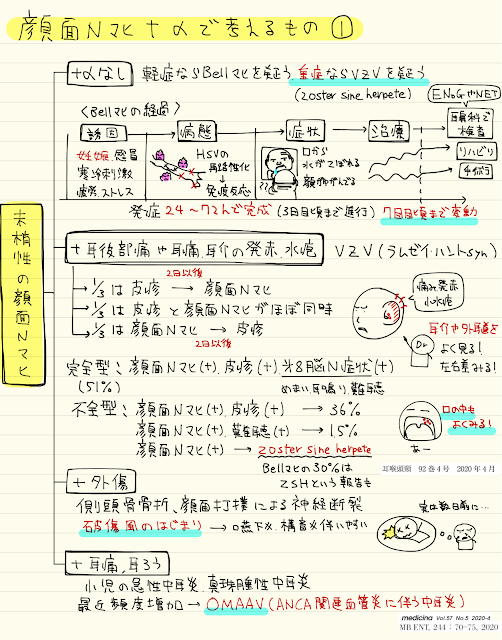 顔面Nマヒ+αで考えるもの①
末梢性の顔面Nマヒ
+αなし 軽症ならBellマヒを疑う、重症ならVZVを疑う
(zoster sine herpete)
〈Bellマヒの経過〉
ENoGやNET
誘因 病態 症状 治療
耳鼻科で検査
妊娠、感冒
寒冷刺激
疲労、ストレス
HSVの
再活性化
→
免疫反応
口から
水がこぼれる
顔がゆがんでる
リハビリ
手術
発症 24〜72hで完成(3日目頃まで進行) 7日目頃まで変動
+耳後部痛や耳痛、耳介の発赤、水疱 VZV(ラムゼイ・ハントsyn)
2日以後
→ 1/3は皮疹 → 顔面Nマヒ
→ 1/3は皮疹と顔面Nマヒがほぼ同時
→ 1/3は顔面Nマヒ → 皮疹
2日以後
痛み、発赤
小水疱
耳介や外耳道を
よく見る!
左右差みる!
Dr
完全型:顔面Nマヒ(+)、皮疹(+)、第8脳N症状(+)
(51%) めまい、耳鳴り、難聴
不全型:顔面Nマヒ(+)、皮疹(+) → 36%
顔面Nマヒ(+)、難聴(+) → 15%
顔面Nマヒ(+) → zoster sine herpete
Bellマヒの30%は
ZSHという報告も
口の中も
よくみる!
あー
耳喉頭頸 92巻4号 2020年4月
+外傷
側頭骨骨折、顔面打撲による神経断裂
破傷風のはじまり → 嚥下×、構音×伴いやすい
実は数日前に…
+耳痛、耳ろう
小児の急性中耳炎、真珠腫性中耳炎
最近頻度増加 → OMAAV(ANCA関連血管炎に伴う中耳炎)
medicina Vol.57 No.5 2020-4
MB ENT, 244:70-75, 2020